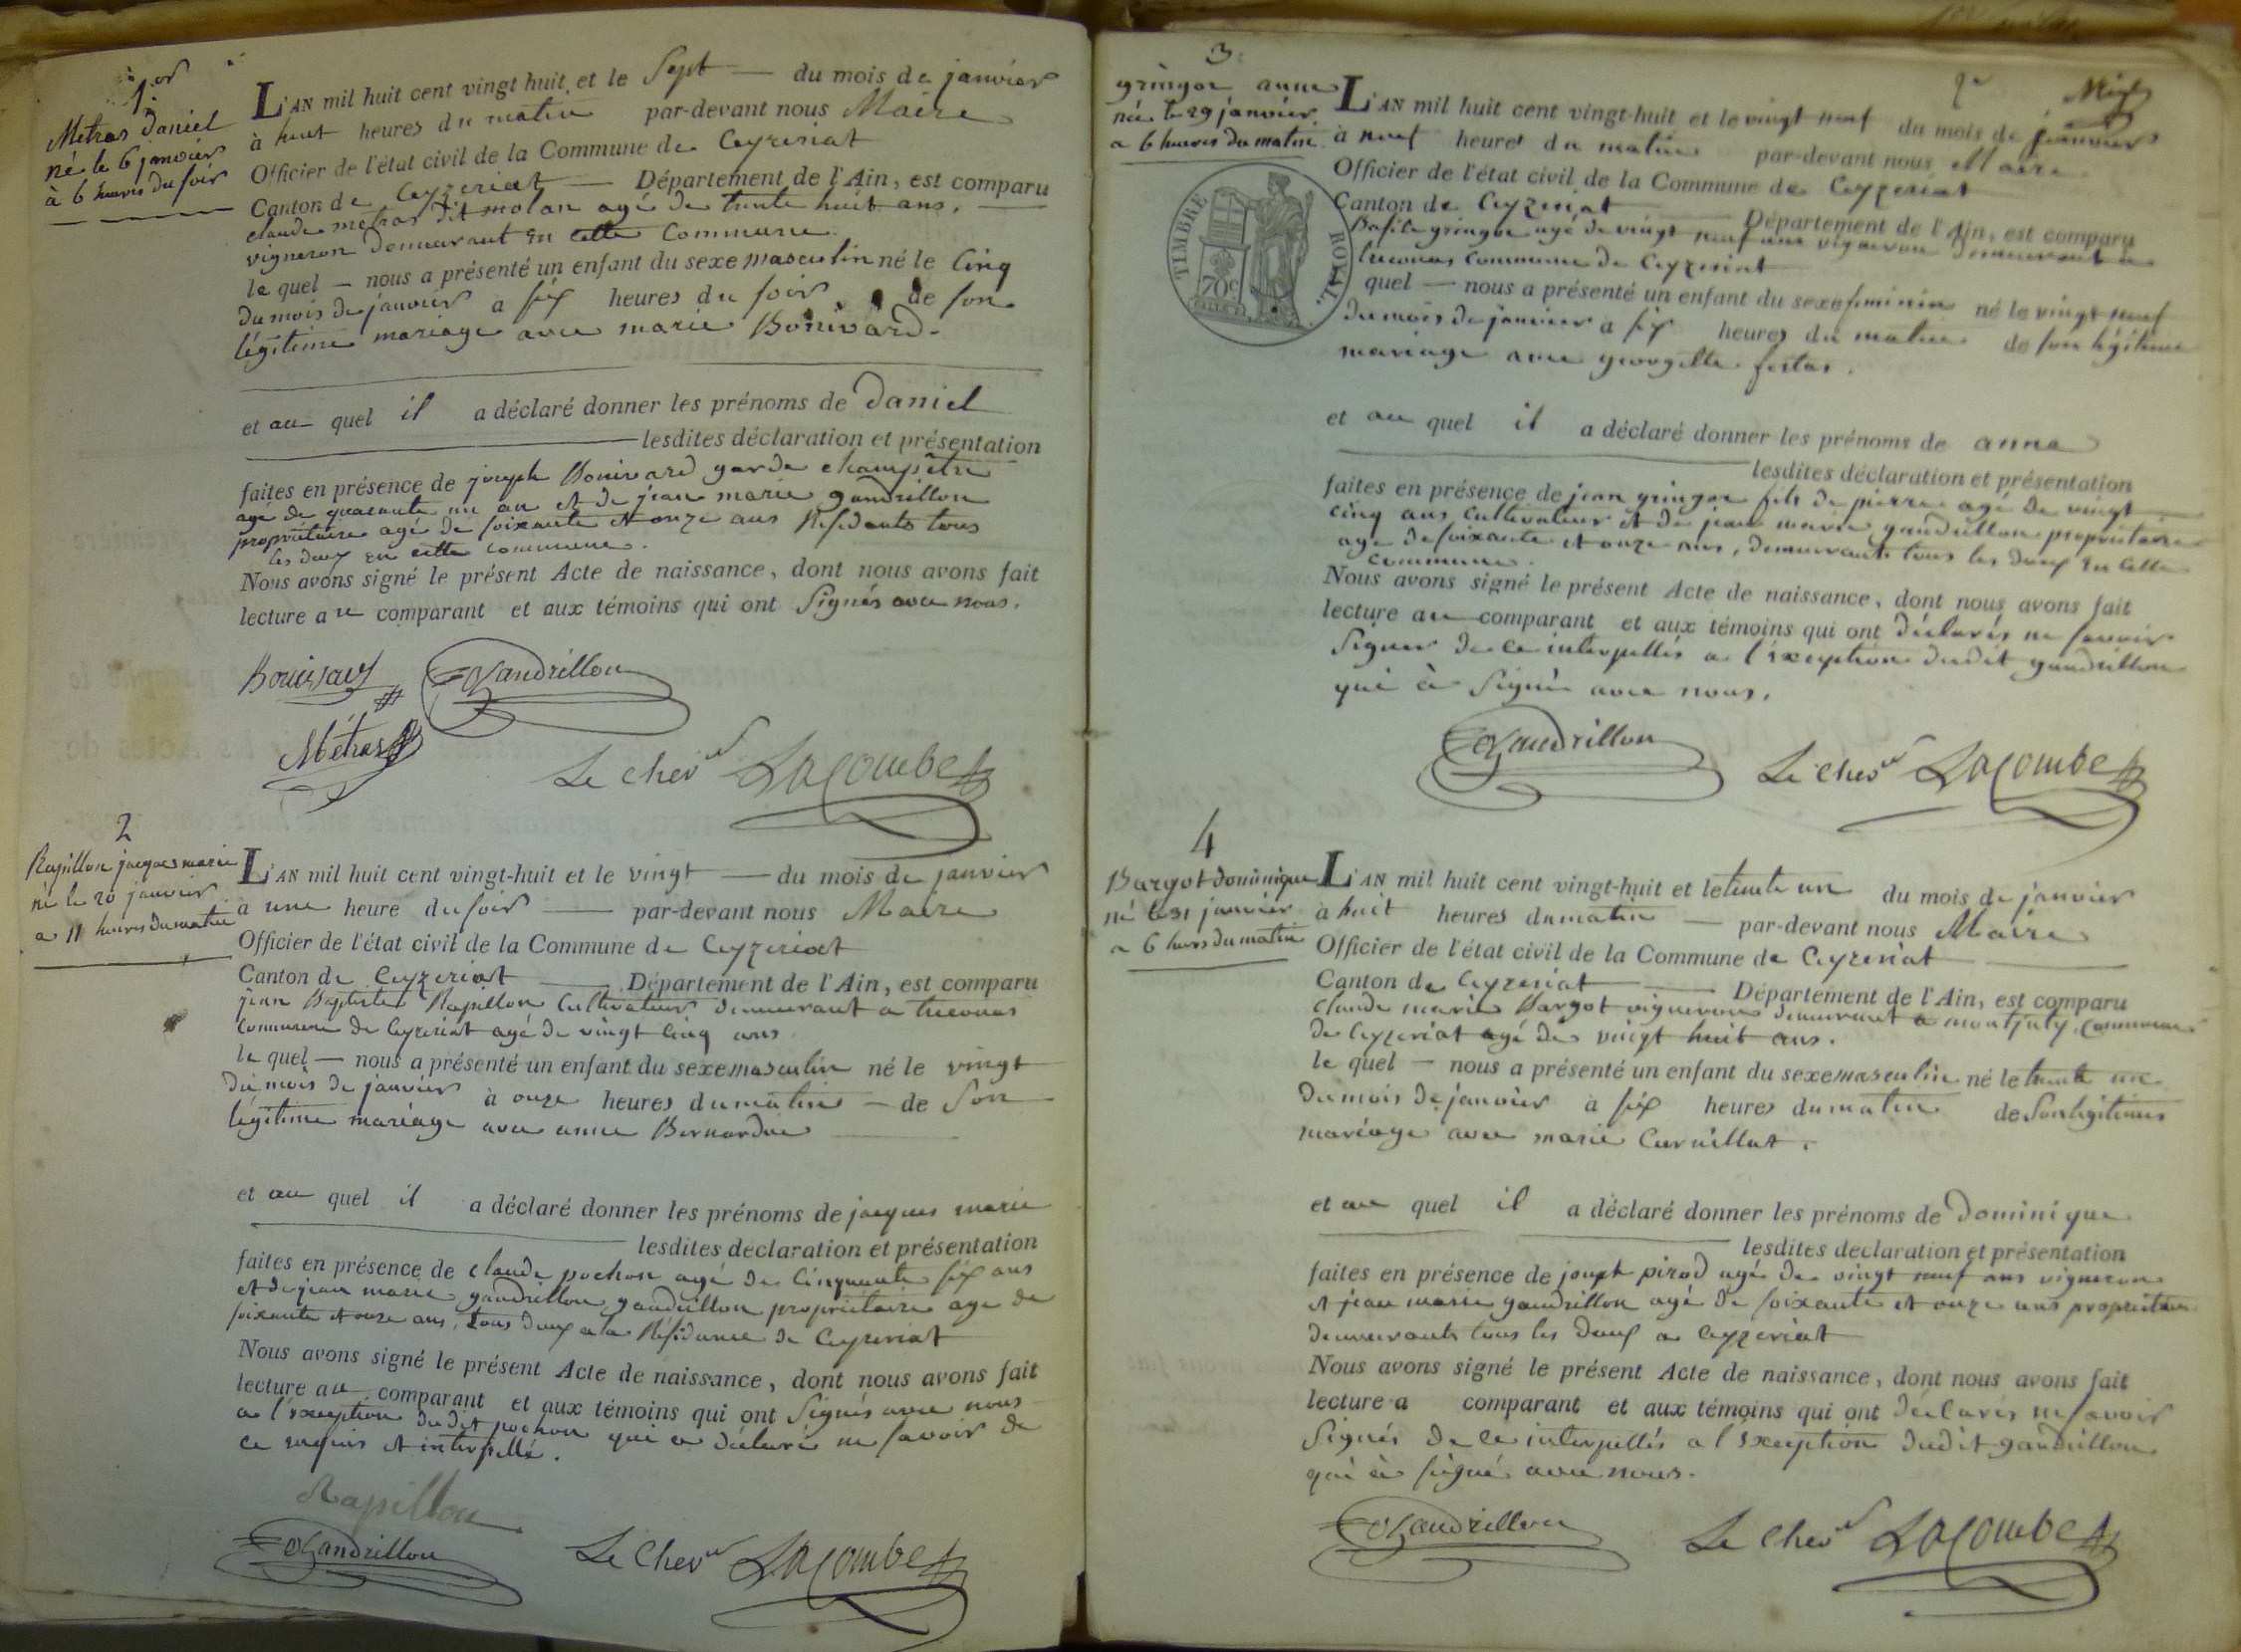 1er
Metras Daniel
né le 6 janvier
à 6 heures du soir
L'AN mil huit cent vingt huit et le Sept du mois de janvier
à huit heures du matin par-devant nous Maire
Officier de l'état civil de la Commune de Ceyzeriat
Canton de Ceyzeriat Département de l'Ain, est comparu
claude metras dit molan agé de trente huit ans,
vigneron demeurant en cette Commune
le quel — nous a présenté un enfant du sexe masculin né le Cinq
du mois de janvier a six heures du soir de son
légitime mariage avec marie Bonivard.
et au quel il a déclaré donner les prénoms de Daniel
lesdites déclaration et présentation
faites en présence de joseph Bonivard garde champêtre
agé de quarante un an et de jean marie gandrillon
propriétaire agé de soixante et onze ans Résidants tous
les deux en cette commune.
Nous avons signé le présent Acte de naissance, dont nous avons fait
lecture au comparant et aux témoins qui ont Signés avec nous.
Gandrillon
Métras
Le Chevr LACOMBE
2
Rapillon jacques marie
né le 20 janvier
a 11 heures du matin
L'AN mil huit cent vingt-huit et le vingt du mois de janvier
à une heure du soir par-devant nous Maire
Officier de l'état civil de la Commune de Ceyzeriat
Canton de Ceyzeriat Département de l'Ain, est comparu
jean Baptiste Rapillon Cultivateur demeurant a treconas
commune de Ceyzeriat agé de vingt Cinq ans
le quel — nous a présenté un enfant du sexe masculin né le vingt
du mois de janvier à onze heures du matin — de Son
légitime mariage avec anne
et au quel il a déclaré donner les prénoms de jacques marie
lesdites déclaration et présentation
faites en présence de claude pochon agé de Cinquante six ans
et de jean marie gandrillon gandrillon propriétaire age de
soixante et onze ans, tous deux a la Résidance de Ceyzeriat
Nous avons signé le présent Acte de naissance, dont nous avons fait
lecture au comparant et aux témoins qui ont Signés avec nous
a l'exception dudit pochon qui a déclaré ne savoir de
ce requis et interpellé.
Rapillon
Gandrillon
Le Chevr LACOMBE
3
gringoz anne
née le 29 janvier
a 6 heures du matin
TIMBRE ROYAL
70c
L'AN mil huit cent vingt-huit et le vingt neuf du mois de janvier
à neuf heures du matin par-devant nous Maire
Officier de l'état civil de la Commune de Ceyzeriat
Canton de Ceyzeriat Département de l'Ain, est comparu
Basile gringoz agé de vingt neuf ans vigneron demeurant a
treconas commune de Ceyzeriat
quel — nous a présenté un enfant du sexe feminin né le vingt neuf
du mois de janvier a six heures du matin de son légitime
mariage avec
et au quel il a déclaré donner les prénoms de anne
lesdites déclaration et présentation
faites en présence de jean gringoz fils de pierre agé de vingt
cinq ans cultivateur et de jean marie gandrillon propriétaire
age de soixante et onze ans, demeurants tous les deux en cette
commune.
Nous avons signé le présent Acte de naissance, dont nous avons fait
lecture au comparant et aux témoins qui ont déclarés ne savoir
Signer de ce interpellés a l'exception dudit gandrillon
qui à Signé avec nous.
Gandrillon
Le Chevr LACOMBE
4
Bargot dominique
né le 31 janvier
a 6 heures du matin
L'AN mil huit cent vingt-huit et le trente un du mois de janvier
à huit heures du matin par-devant nous Maire
Officier de l'état civil de la Commune de Ceyzeriat
Canton de Ceyzeriat Département de l'Ain, est comparu
claude marie Bargot vigneron demeurant a montjuly Commune
de Ceyzeriat agé de vingt huit ans.
le quel — nous a présenté un enfant du sexe masculin né le trente un
du mois de janvier à six heures du matin de Son légitime
mariage avec marie
et au quel il a déclaré donner les prénoms de Dominique
lesdites déclaration et présentation
faites en présence de joseph pirod agé de vingt neuf ans vigneron
et jean marie gandrillon agé de soixante et onze ans propriétaire
demeurants tous les deux a Ceyzeriat
Nous avons signé le présent Acte de naissance, dont nous avons fait
lecture a comparant et aux témoins qui ont déclarés ne savoir
Signés de ce interpellés a l'exception dudit gandrillon
qui à signé avec nous.
Gandrillon
Le Chevr LACOMBE